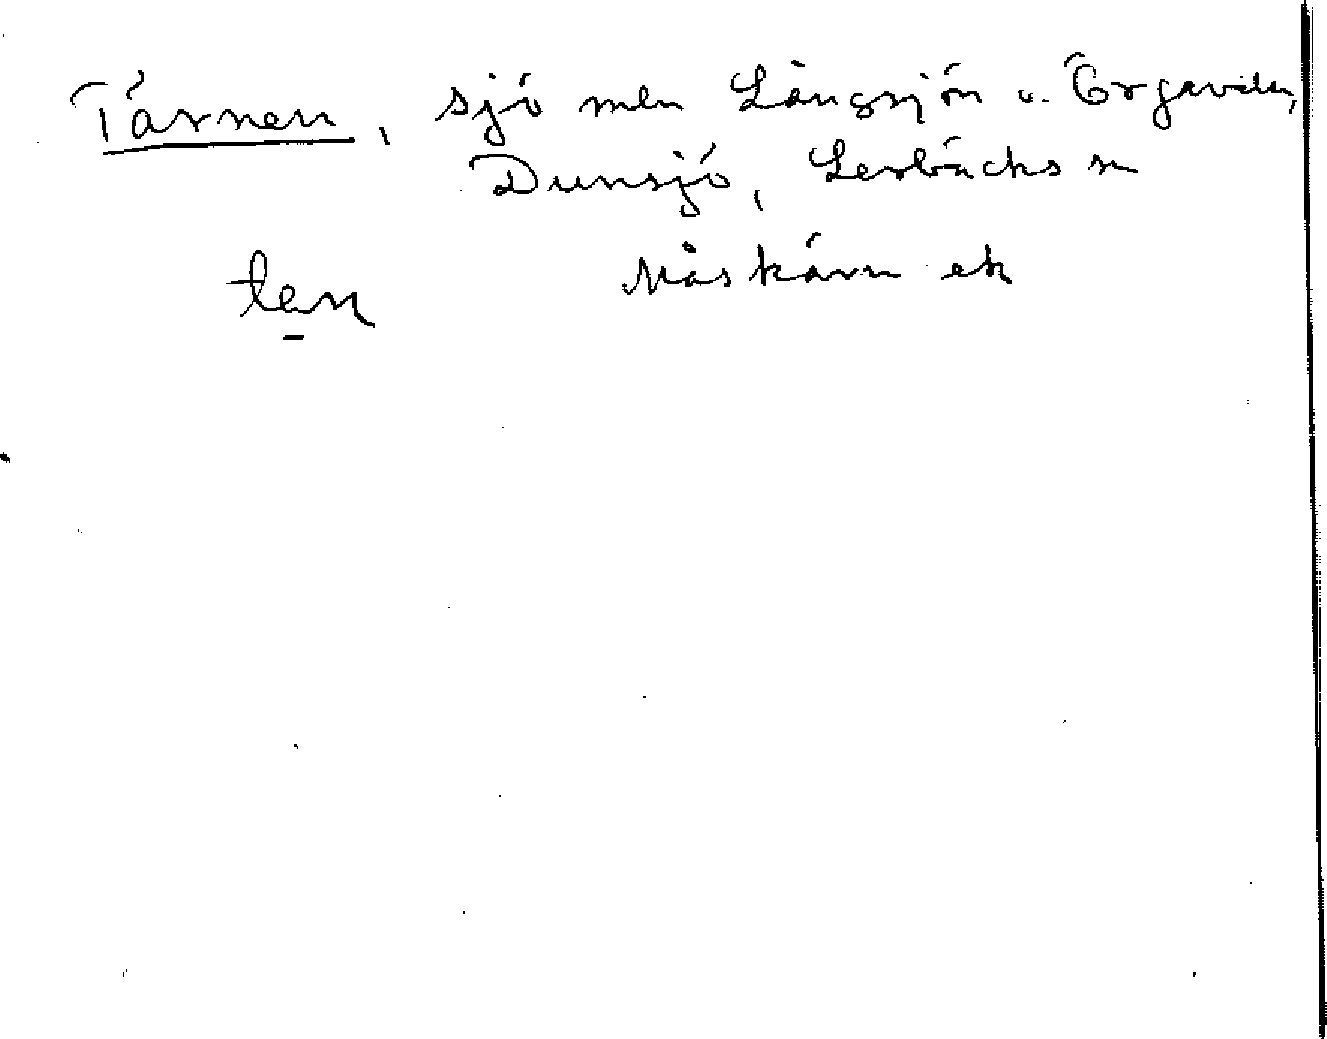 Tärnen, sjö mln Långsjön o. Örgaviken,
Dunsjö, Lerbäcks sn
Måskärn ek